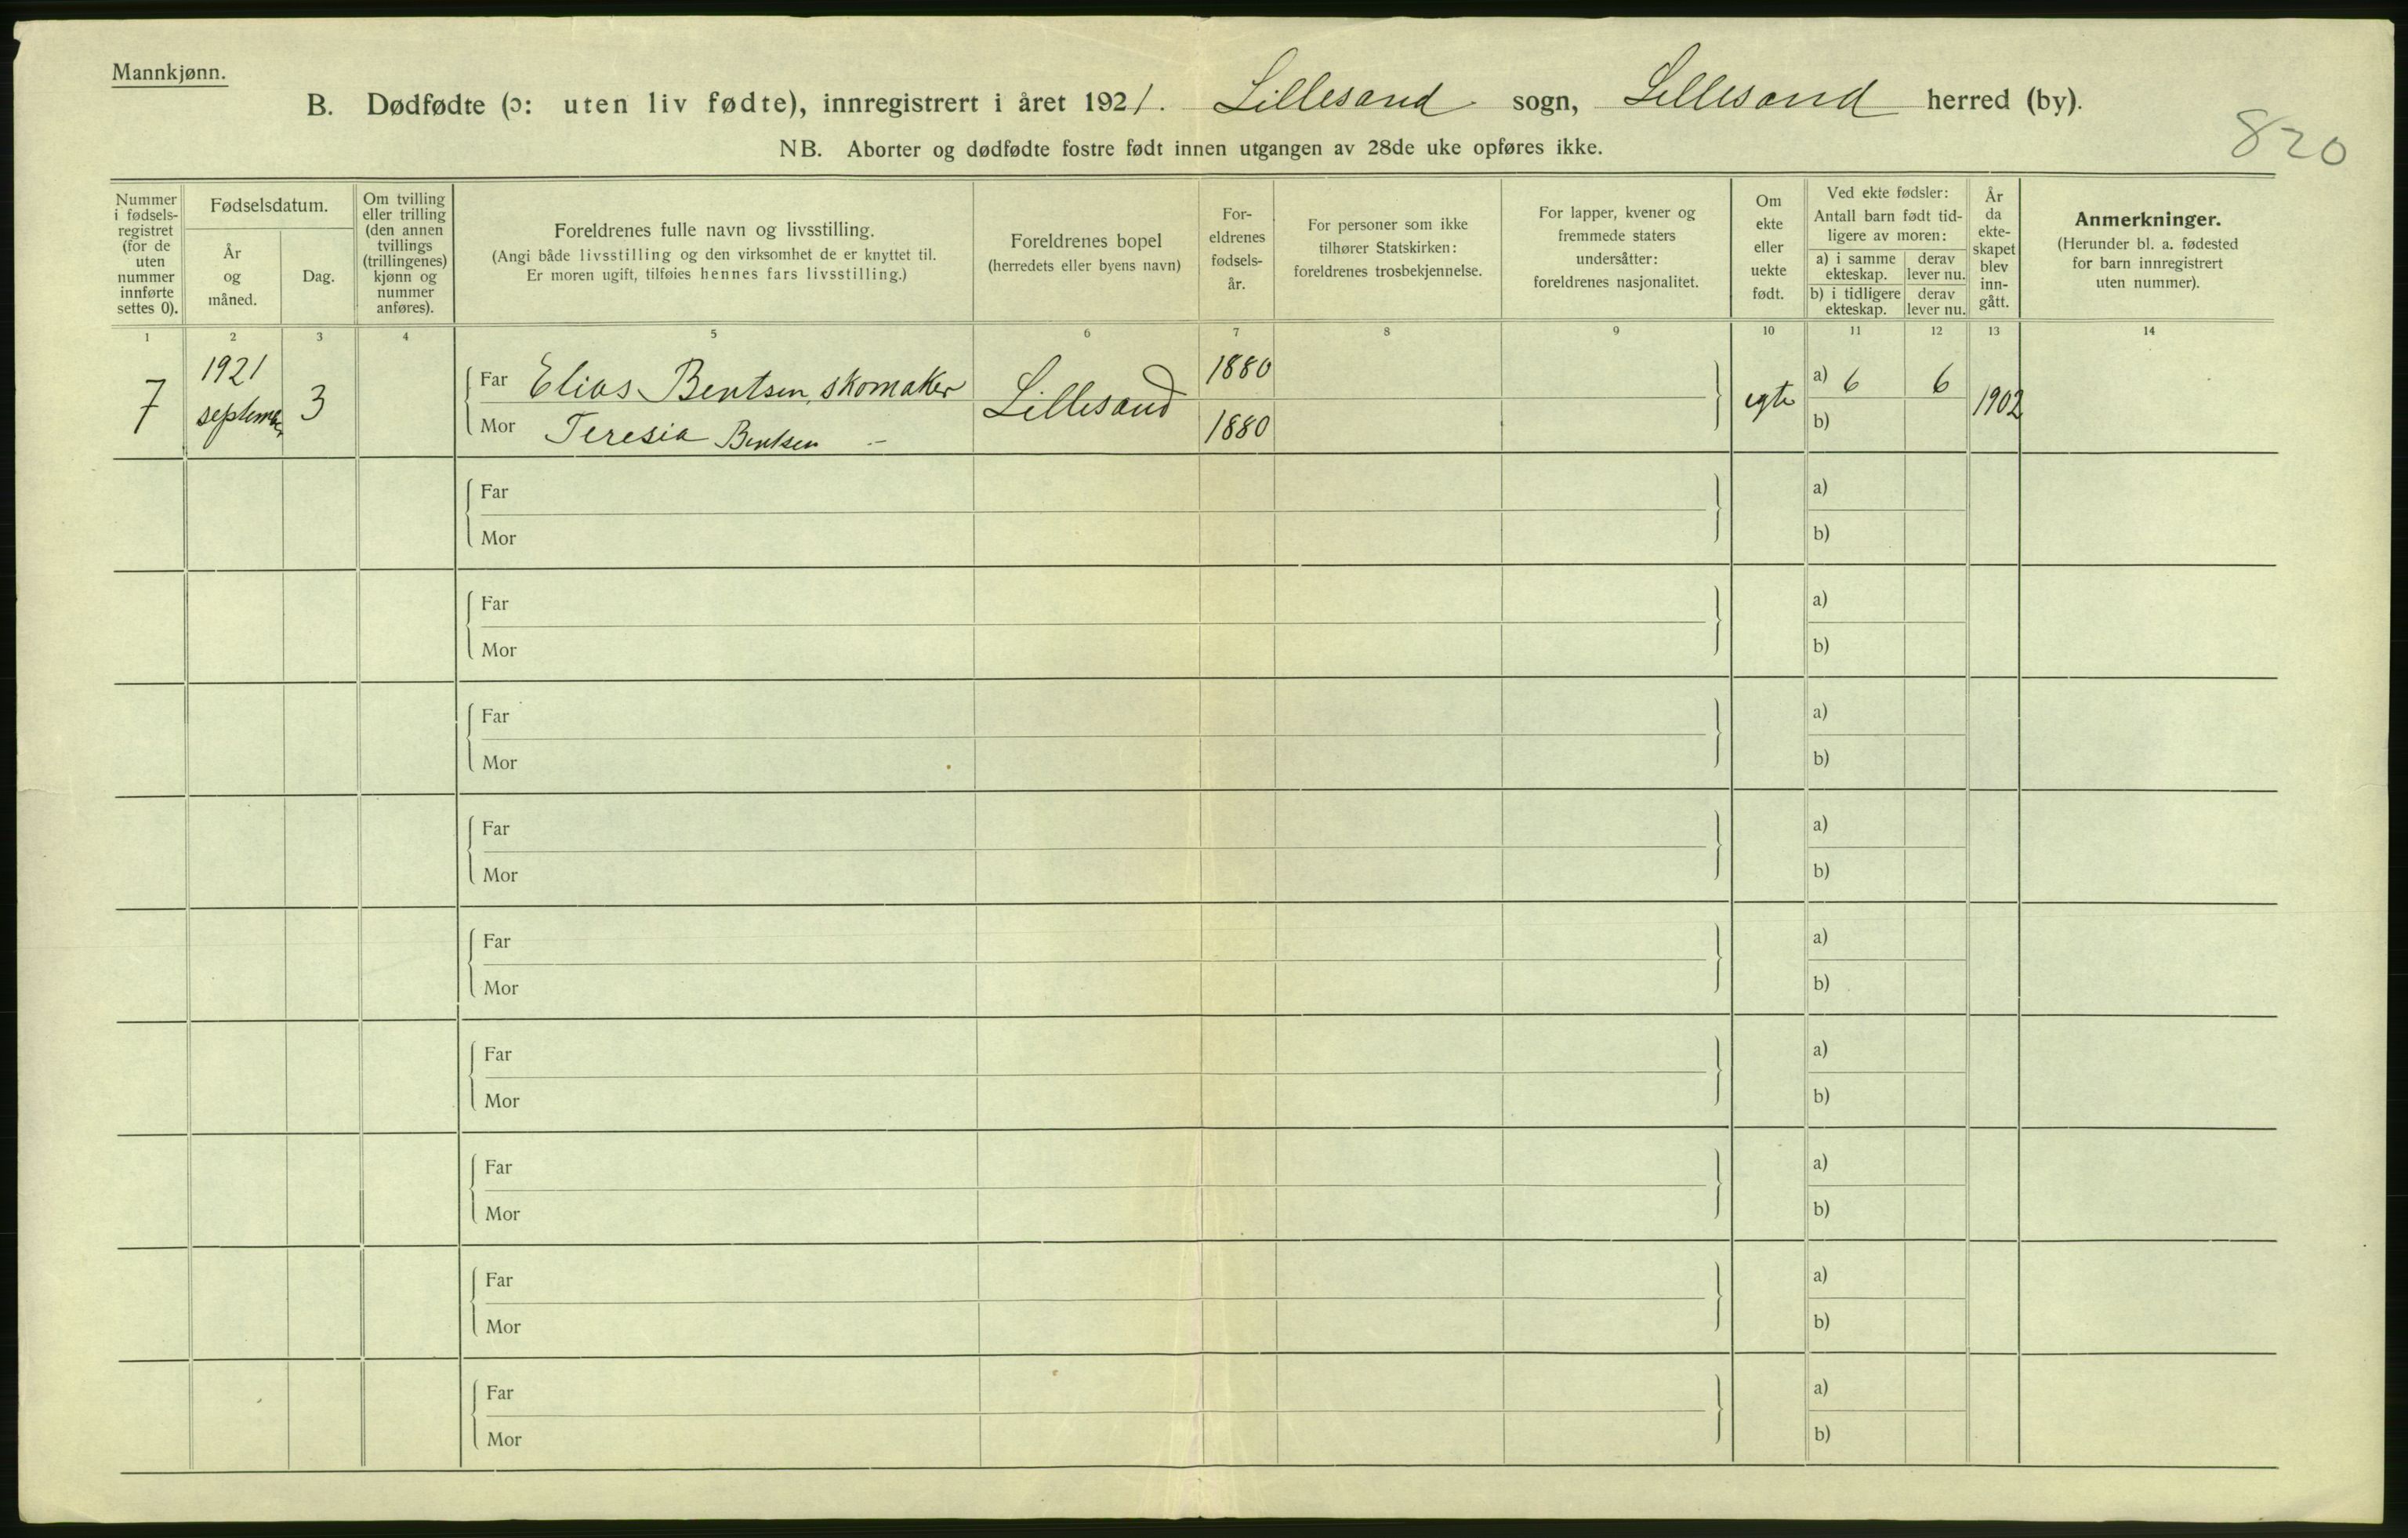 Mannkjønn.
B. Dødfødte (ɔ: uten liv fødte), innregistrert i året 1921. Lillesand sogn, Lillesand herred (by).
820
NB. Aborter og dødfødte fostre født innen utgangen av 28de uke opføres ikke.
Nummer i fødsels- registret (for de uten nummer innførte settes 0).
Fødselsdatum.
År og måned.
Dag.
Om tvilling eller trilling (den annen tvillings (trillingenes) kjønn og nummer anføres).
Foreldrenes fulle navn og livsstilling.
(Angi både livsstilling og den virksomhet de er knyttet til.
Er moren ugift, tilføies hennes fars livsstilling.)
Foreldrenes bopel
(herredets eller byens navn)
For- eldrenes fødsels- år.
For personer som ikke tilhører Statskirken: foreldrenes trosbekjennelse.
For lapper, kvener og fremmede staters undersåtter: foreldrenes nasjonalitet.
Om ekte eller uekte født.
Ved ekte fødsler:
Antall barn født tid- ligere av moren:
a) i samme ekteskap.
derav lever nu.
b) i tidligere ekteskap.
derav lever nu.
År da ekte- skapet blev inn- gått.
Anmerkninger.
(Herunder bl. a. fødested for barn innregistrert uten nummer).
1 2 3 4 5 6 7 8 9 10 11 12 13 14
7 1921 september 3 Far Elias Bentsen, skomaker Lillesand 1880 egte a) 6 6 1902
Mor Teresia Bentsen – 1880 b)
Far a)
Mor b)
Far a)
Mor b)
Far a)
Mor b)
Far a)
Mor b)
Far a)
Mor b)
Far a)
Mor b)
Far a)
Mor b)
Far a)
Mor b)
Far a)
Mor b)